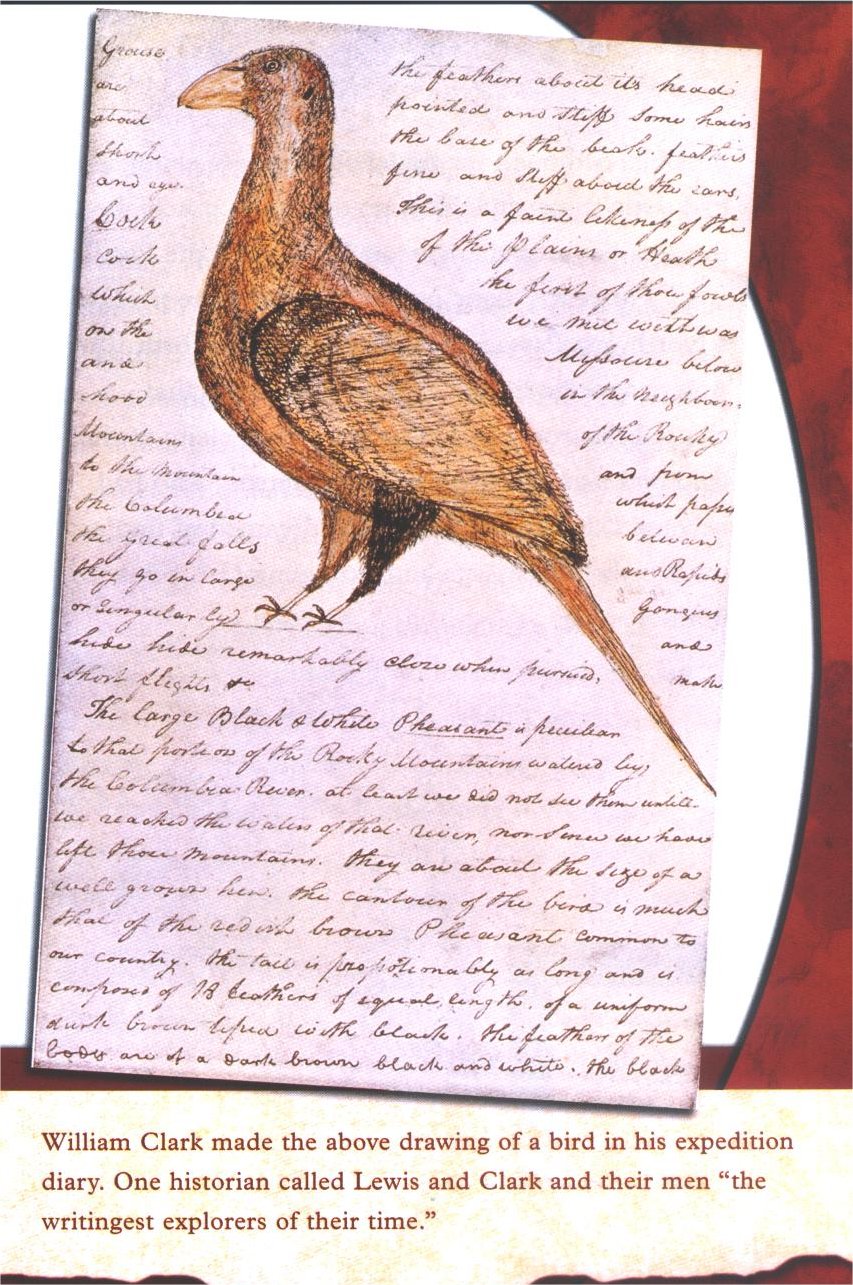 Grouse the feathers about its head
are pointed and stiff some hairs
about the base of the beak. feathers
short fine and stiff about the ears,
and eye. This is a faint likeness of the
Cock of the Plains or Heath
cock the first of those fowls
which we met with was
on the Missouri below
and in the neighbour-
hood of the Rocky
Mountains and from
to the mountain which pass
the Columbia between
the great falls and Rapids
they go in large Gangues
or singularly and
hide hide remarkably close when pursued, make
short flights &c
The large Black & White Pheasant is peculiar
to that portion of the Rocky Mountains watered by
the Columbia River. at least we did not see them untill
we reached the waters of that river, nor since we have
left those mountains. they are about the size of a
well grown hen. the contour of the bird is much
that of the redish brown Pheasant common to
our country. the tail is proportionably as long and is
composed of 18 feathers of equal length, of a uniform
dark brown tiped with black. the feathers of the
body are of a dark brown black and white. the black
William Clark made the above drawing of a bird in his expedition
diary. One historian called Lewis and Clark and their men “the
writingest explorers of their time.”